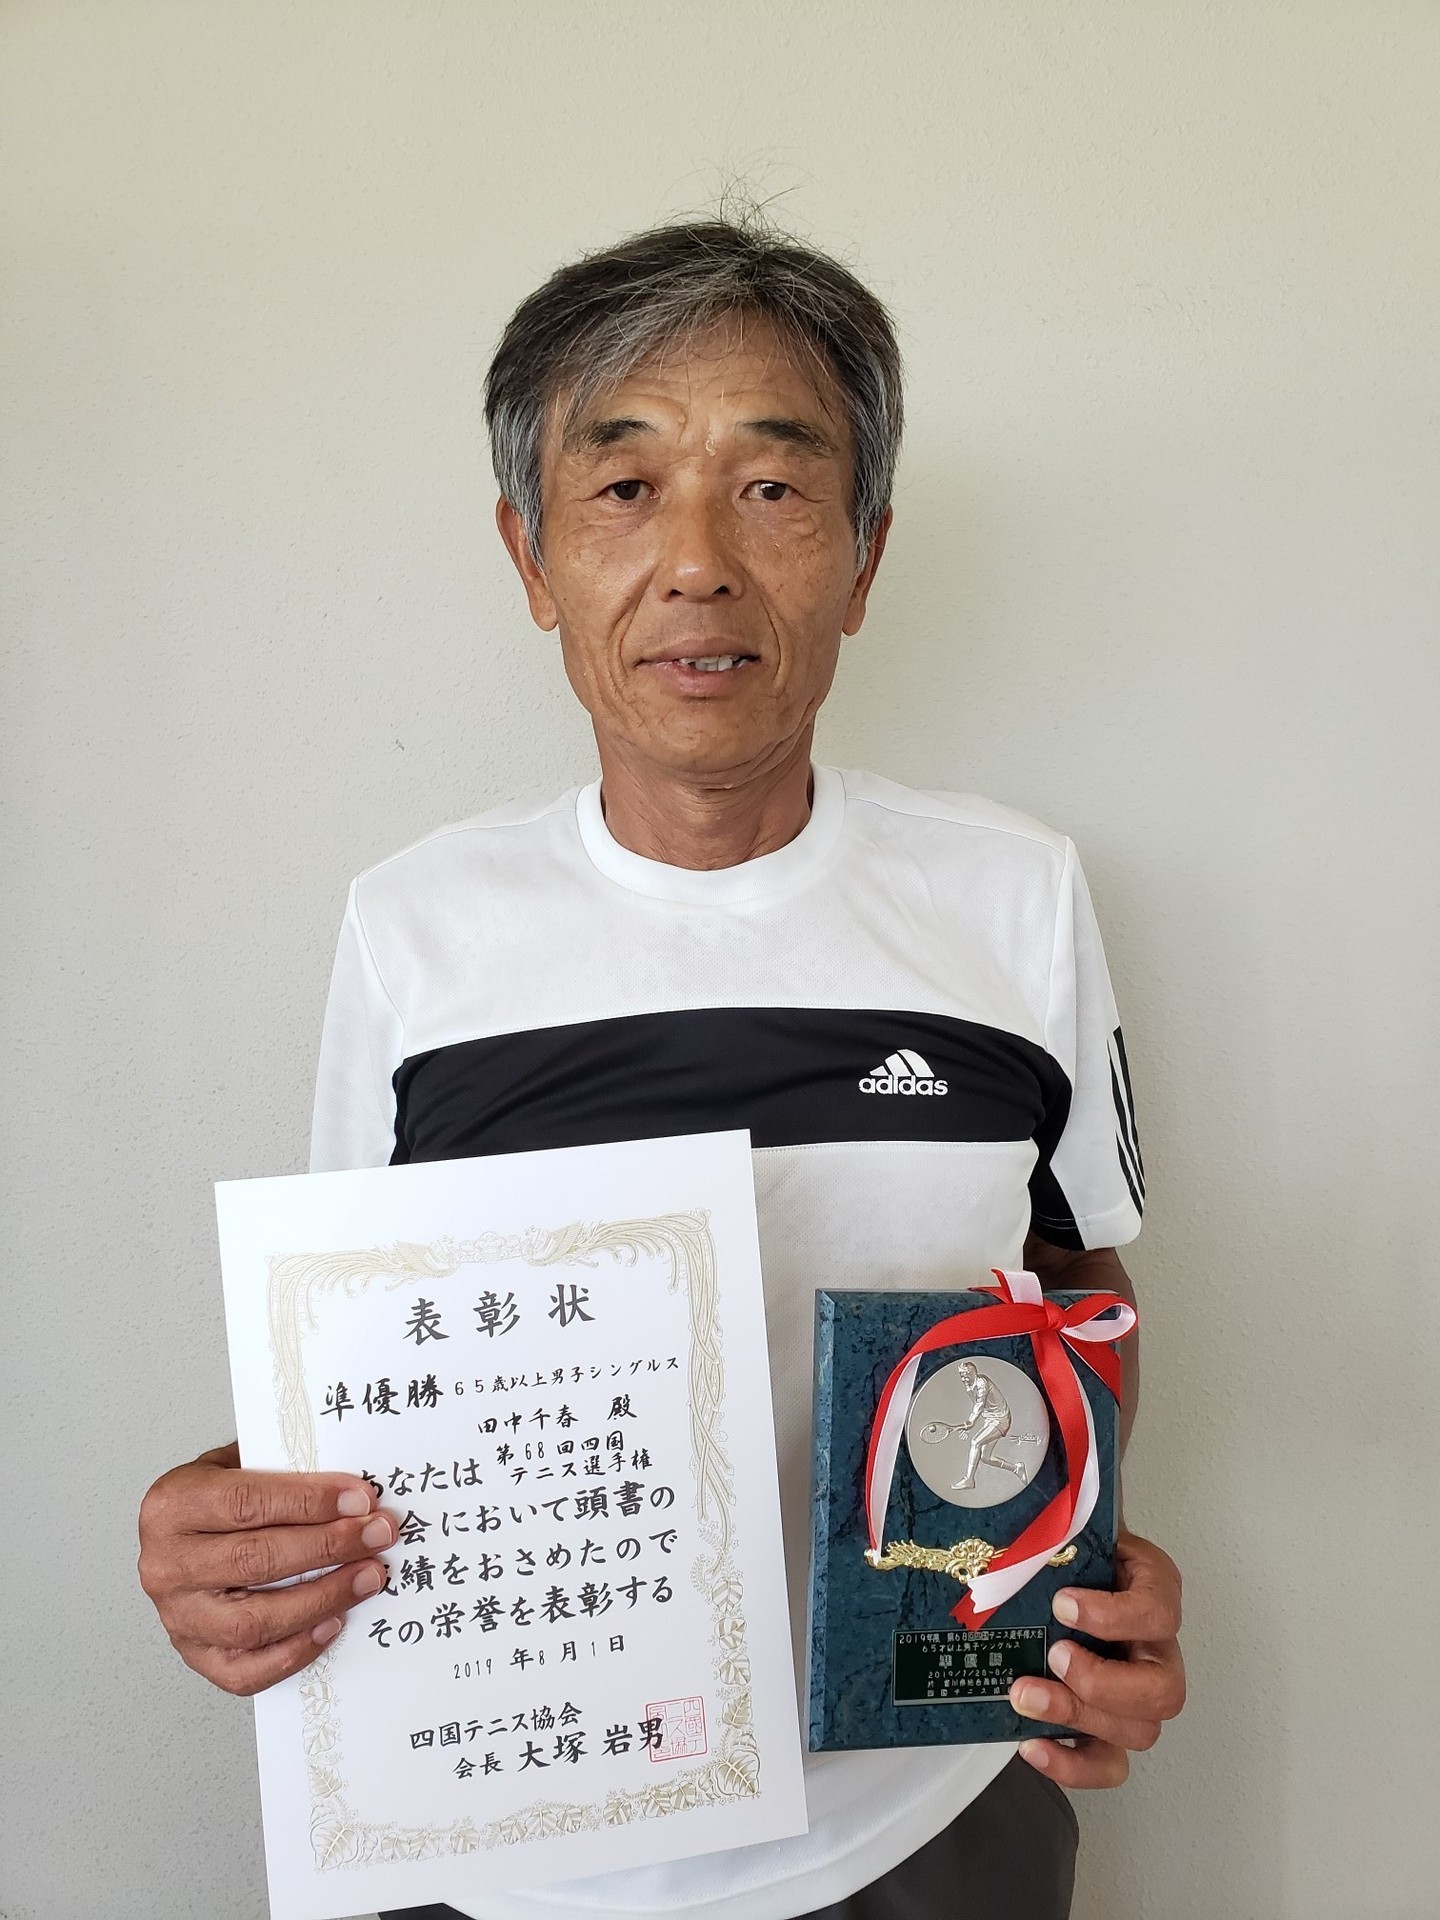 adidas
表彰状
準優勝 65歳以上男子シングルス
田中千春 殿
あなたは 第68回四国
テニス選手権
会において頭書の
成績をおさめたので
その栄誉を表彰する
2019 年8 月 1 日
四国テニス協会
会長 大塚 岩男
2019年度 第68回四国テニス選手権大会
65才以上男子シングルス
準優勝
2019/7/28~8/2
四国テニス協